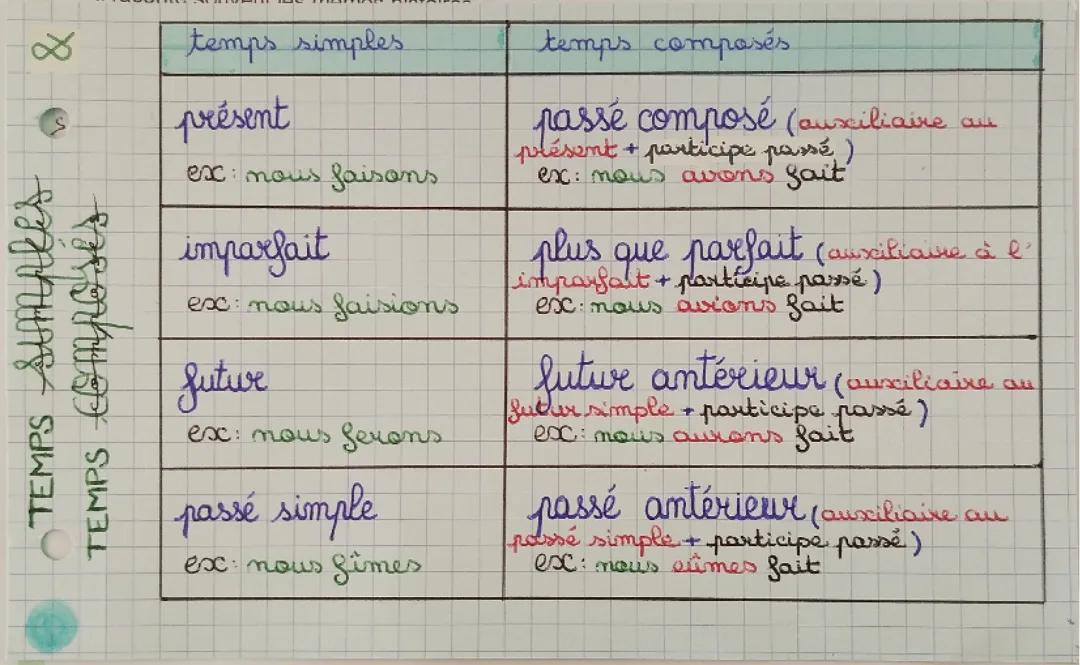 temps simples
temps composés
présent
ex: nous faisons
passé composé (auxiliaire au
présent + participe passé)
ex: nous avons fait
imparfait
ex: nous faisions
plus que parfait (auxiliaire à l'
imparfait + participe passé)
ex: nous avions fait
futur
ex: nous ferons
futur antérieur (auxiliaire au
futur simple + participe passé)
ex: nous aurons fait
passé simple
ex: nous fîmes
passé antérieur (auxiliaire au
passé simple + participe passé)
ex: nous eûmes fait
TEMPS SIMPLES &
TEMPS COMPOSÉS